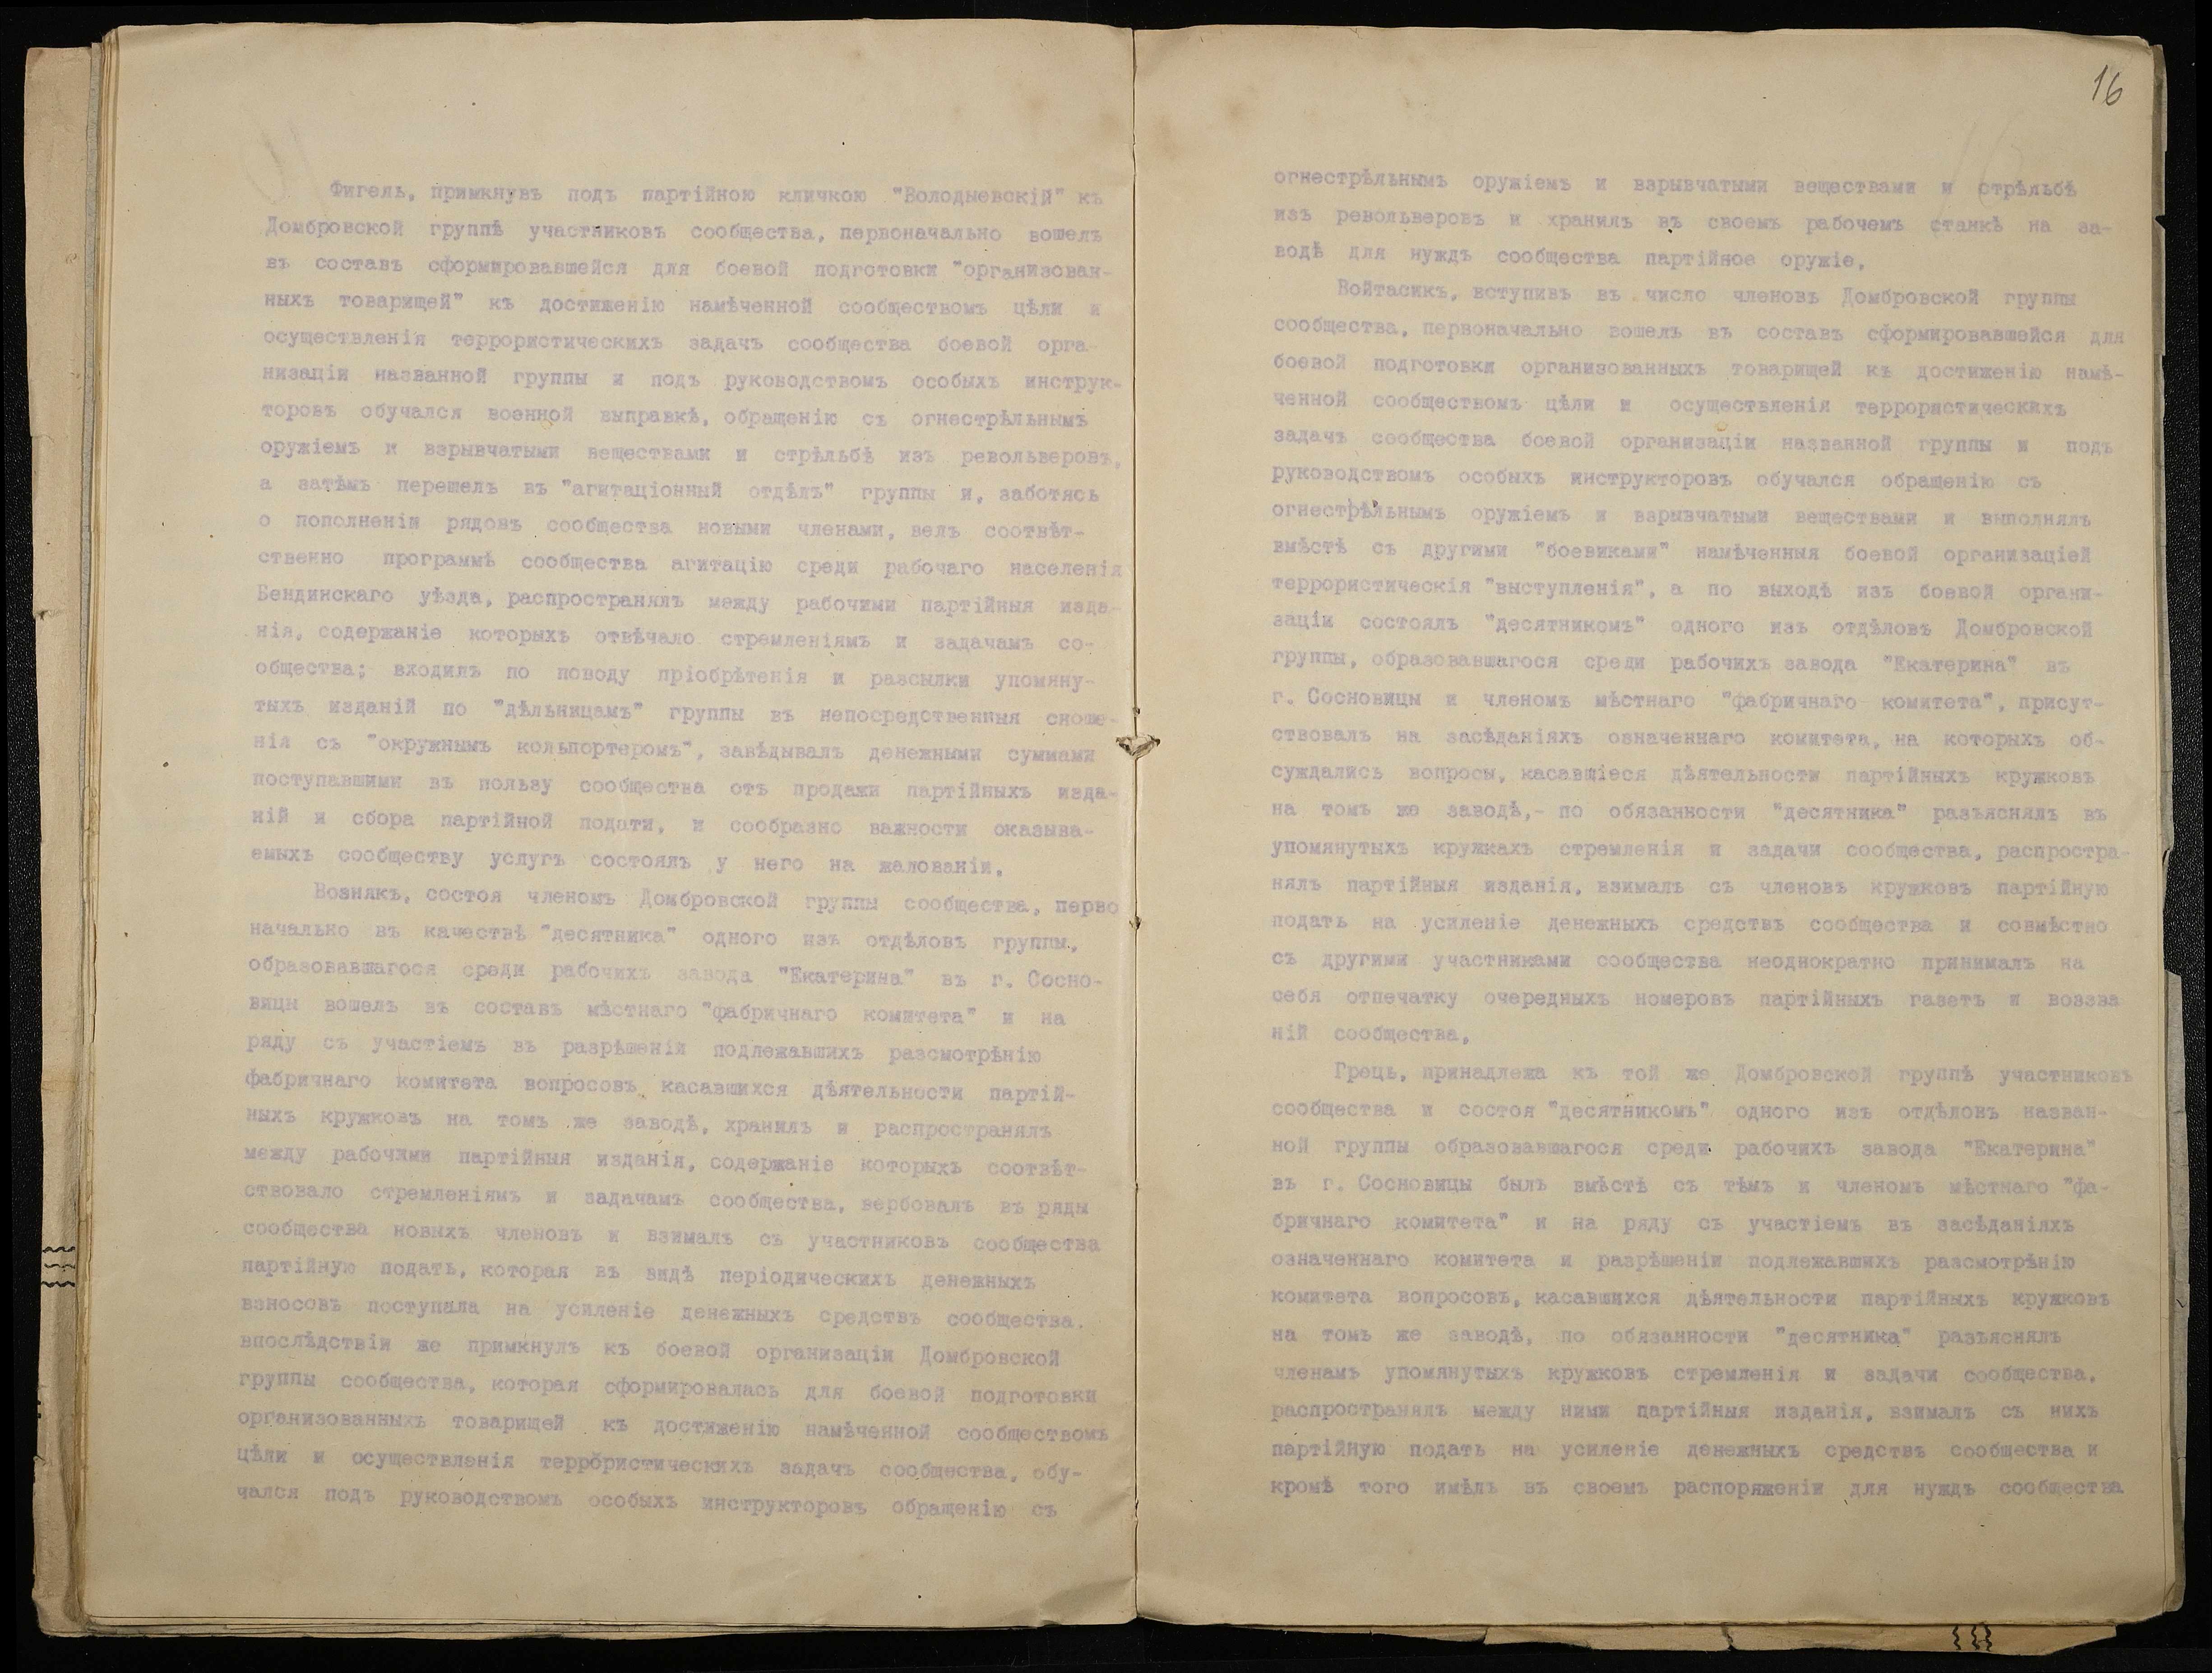 Фигель, примкнувъ подъ партійною кличкою "Володыевскій" къ
Домбровской группѣ участниковъ сообщества, первоначально вошелъ
въ составъ сформировавшейся для боевой подготовки "организован-
ныхъ товарищей" къ достиженію намѣченной сообществомъ цѣли и
осуществленія террористическихъ задачъ сообщества боевой орга-
низаціи названной группы и подъ руководствомъ особыхъ инструк-
торовъ обучался военной выправкѣ, обращенію съ огнестрѣльнымъ
оружіемъ и взрывчатыми веществами и стрѣльбѣ изъ револьверовъ,
а затѣмъ перешелъ въ "агитаціонный отдѣлъ" группы и, заботясь
о пополненіи рядовъ сообщества новыми членами, велъ соотвѣт-
ственно программѣ сообщества агитацію среди рабочаго населенія
Бендинскаго уѣзда, распространялъ между рабочими партійныя изда-
нія, содержаніе которыхъ отвѣчало стремленіямъ и задачамъ со-
общества; входилъ по поводу пріобрѣтенія и разсылки упомяну-
тыхъ изданій по "дѣльницамъ" группы въ непосредственныя сноше-
нія съ "окружнымъ кольпортеромъ", завѣдывалъ денежными суммами
поступавшими въ пользу сообщества отъ продажи партійныхъ изда-
ній и сбора партійной подати, и сообразно важности оказыва-
емыхъ сообществу услугъ состоялъ у него на жалованіи.
Вознякъ, состоя членомъ Домбровской группы сообщества, перво
начально въ качествѣ "десятника" одного изъ отдѣловъ группы,
образовавшагося среди рабочихъ завода "Екатерина" въ г. Сосно-
вицы вошелъ въ составъ мѣстнаго "фабричнаго комитета" и на
ряду съ участіемъ въ разрѣшеніи подлежавшихъ разсмотрѣнію
фабричнаго комитета вопросовъ касавшихся дѣятельности партій-
ныхъ кружковъ на томъ же заводѣ, хранилъ и распространялъ
между рабочими партійныя изданія, содержаніе которыхъ соотвѣт-
ствовало стремленіямъ и задачамъ сообщества, вербовалъ въ ряды
сообщества новыхъ членовъ и взималъ съ участниковъ сообщества
партійную подать, которая въ видѣ періодическихъ денежныхъ
взносовъ поступала на усиленіе денежныхъ средствъ сообщества.
впослѣдствіи же примкнулъ къ боевой организаціи Домбровской
группы сообщества, которая сформировалась для боевой подготовки
организованныхъ товарищей къ достиженію намѣченной сообществомъ
цѣли и осуществленія террористическихъ задачъ сообщества, обу-
чался подъ руководствомъ особыхъ инструкторовъ обращенію съ
16
огнестрѣльнымъ оружіемъ и взрывчатыми веществами и стрѣльбѣ
изъ револьверовъ и хранилъ въ своемъ рабочемъ станкѣ на за-
водѣ для нуждъ сообщества партійное оружіе.
Войтасикъ, вступивъ въ число членовъ Домбровской группы
сообщества, первоначально вошелъ въ составъ сформировавшейся для
боевой подготовки организованныхъ товарищей къ достиженію намѣ-
ченной сообществомъ цѣли и осуществленія террористическихъ
задачъ сообщества боевой организаціи названной группы и подъ
руководствомъ особыхъ инструкторовъ обучался обращенію съ
огнестрѣльнымъ оружіемъ и взрывчатыми веществами и выполнялъ
вмѣстѣ съ другими "боевиками" намѣченныя боевой организаціей
террористическія "выступленія", а по выходѣ изъ боевой органи-
заціи состоялъ "десятникомъ" одного изъ отдѣловъ Домбровской
группы, образовавшагося среди рабочихъ завода "Екатерина" въ
г. Сосновицы и членомъ мѣстнаго "фабричнаго комитета", присут-
ствовалъ на засѣданіяхъ означеннаго комитета, на которыхъ об-
суждались вопросы, касавшіеся дѣятельности партійныхъ кружковъ
на томъ же заводѣ,- по обязанности "десятника" разъяснялъ въ
упомянутыхъ кружкахъ стремленія и задачи сообщества, распростра-
нялъ партійныя изданія, взималъ съ членовъ кружковъ партійную
подать на усиленіе денежныхъ средствъ сообщества и совмѣстно
съ другими участниками сообщества неоднократно принималъ на
себя отпечатку очередныхъ номеровъ партійныхъ газетъ и воззва
ній сообщества.
Грець, принадлежа къ той же Домбровской группѣ участниковъ
сообщества и состоя "десятникомъ" одного изъ отдѣловъ назван-
ной группы образовавшагося среди рабочихъ завода "Екатерина"
въ г. Сосновицы былъ вмѣстѣ съ тѣмъ и членомъ мѣстнаго "фа-
бричнаго комитета" и на ряду съ участіемъ въ засѣданіяхъ
означеннаго комитета и разрѣшеніи подлежавшихъ разсмотрѣнію
комитета вопросовъ, касавшихся дѣятельности партійныхъ кружковъ
на томъ же заводѣ, по обязанности "десятника" разъяснялъ
членамъ упомянутыхъ кружковъ стремленія и задачи сообщества,
распространялъ между ними партійныя изданія, взималъ съ нихъ
партійную подать на усиленіе денежныхъ средствъ сообщества и
кромѣ того имѣлъ въ своемъ распоряженіи для нуждъ сообщества